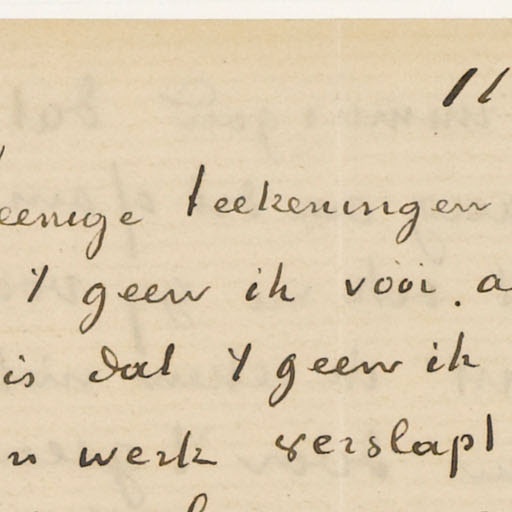 11
eenige teekeningen
't geen ik vóór. a
is dat 't geen ik
n werk verslapt